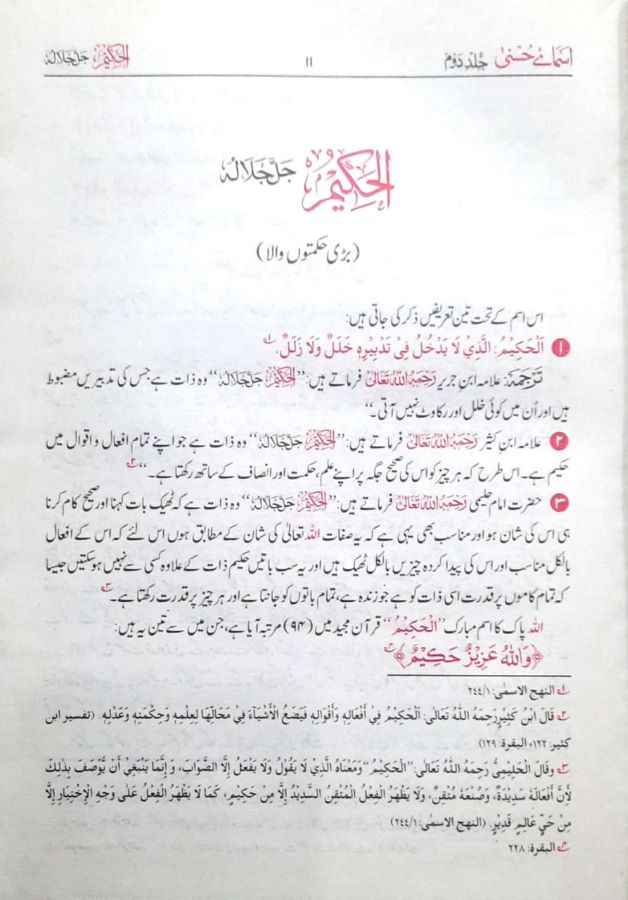 اسمائے حُسنیٰ جلد دوم ۱۱ الحکیم جَلَّ جَلَالُہٗ
الحَکِیْمُ جَلَّ جَلَالُہٗ
(بڑی حکمتوں والا)
اس اسم کے تحت تین تعریفیں ذکر کی جاتی ہیں:
۱ اَلْحَكِيْمُ: الَّذِيْ لَا يَدْخُلُ فِيْ تَدْبِيْرِهٖ خَلَلٌ وَلَا زَلَلٌ. ؎۱
تَرْجَمَۃ: علامہ ابن جریر رَحِمَہُ اللّٰہُ تَعَالٰی فرماتے ہیں: ”الحَکِیْمُ جَلَّ جَلَالُہٗ“ وہ ذات ہے جس کی تدبیریں مضبوط
ہیں اور اُن میں کوئی خلل اور رکاوٹ نہیں آتی۔“
۲ علامہ ابن کثیر رَحِمَہُ اللّٰہُ تَعَالٰی فرماتے ہیں: ”الحَکِیْمُ جَلَّ جَلَالُہٗ“ وہ ذات ہے جو اپنے تمام افعال و اقوال میں
حکیم ہے۔ اس طرح کہ ہر چیز کو اس کی صحیح جگہ پر اپنے علم، حکمت اور انصاف کے ساتھ رکھتا ہے۔“ ؎۲
۳ حضرت امام حلیمی رَحِمَہُ اللّٰہُ تَعَالٰی فرماتے ہیں: ”الحَکِیْمُ جَلَّ جَلَالُہٗ“ وہ ذات ہے کہ ٹھیک بات کہنا اور صحیح کام کرنا
ہی اس کی شان ہو اور مناسب بھی یہی ہے کہ یہ صفات اللہ تعالیٰ کی شان کے مطابق ہوں اس لئے کہ اس کے افعال
بالکل مناسب اور اس کی پیدا کردہ چیزیں بالکل ٹھیک ہیں اور یہ سب باتیں حکیم ذات کے علاوہ کسی سے نہیں ہوسکتیں جیسا
کہ تمام کاموں پر قدرت اسی ذات کو ہے جو زندہ ہے، تمام باتوں کو جانتا ہے اور ہر چیز پر قدرت رکھتا ہے۔ ؎۳
اللہ پاک کا اسم مبارک ”الْحَكِيْمُ“ قرآن مجید میں (۹۴) مرتبہ آیا ہے، جن میں سے تین یہ ہیں:
﴿وَاللّٰهُ عَزِيْزٌ حَكِيْمٌ﴾ ؎۴
؎۱ النهج الاسمٰی: ۲۴۴/۱
؎۲ قَالَ ابْنُ كَثِيْرٍ رَحِمَهُ اللّٰهُ تَعَالٰى: اَلْحَكِيْمُ فِيْ أَفْعَالِهٖ وَأَقْوَالِهٖ فَيَضَعُ الْأَشْيَآءَ فِيْ مَحَالِّهَا لِعِلْمِهٖ وَحِكْمَتِهٖ وَعَدْلِهٖ. (تفسیر ابن
کثیر: ۱۲۲، البقرۃ: ۱۲۹)
؎۳ وَقَالَ الْحَلِيْمِيُّ رَحِمَهُ اللّٰهُ تَعَالٰى: ”الْحَكِيْمُ“ وَمَعْنَاهُ الَّذِيْ لَا يَقُوْلُ وَلَا يَفْعَلُ إِلَّا الصَّوَابَ، وَإِنَّمَا يَنْبَغِيْ أَنْ يُّوْصَفَ بِذٰلِكَ
لِأَنَّ أَفْعَالَهٗ سَدِيْدَةٌ، وَصُنْعَهٗ مُتْقَنٌ، وَلَا يَظْهَرُ الْفِعْلُ الْمُتْقَنُ السَّدِيْدُ إِلَّا مِنْ حَكِيْمٍ، كَمَا لَا يَظْهَرُ الْفِعْلُ عَلٰى وَجْهِ الْإِخْتِيَارِ إِلَّا
مِنْ حَيٍّ عَالِمٍ قَدِيْرٍ. (النهج الاسمٰی: ۲۴۴/۱)
؎۴ البقرۃ: ۲۲۸